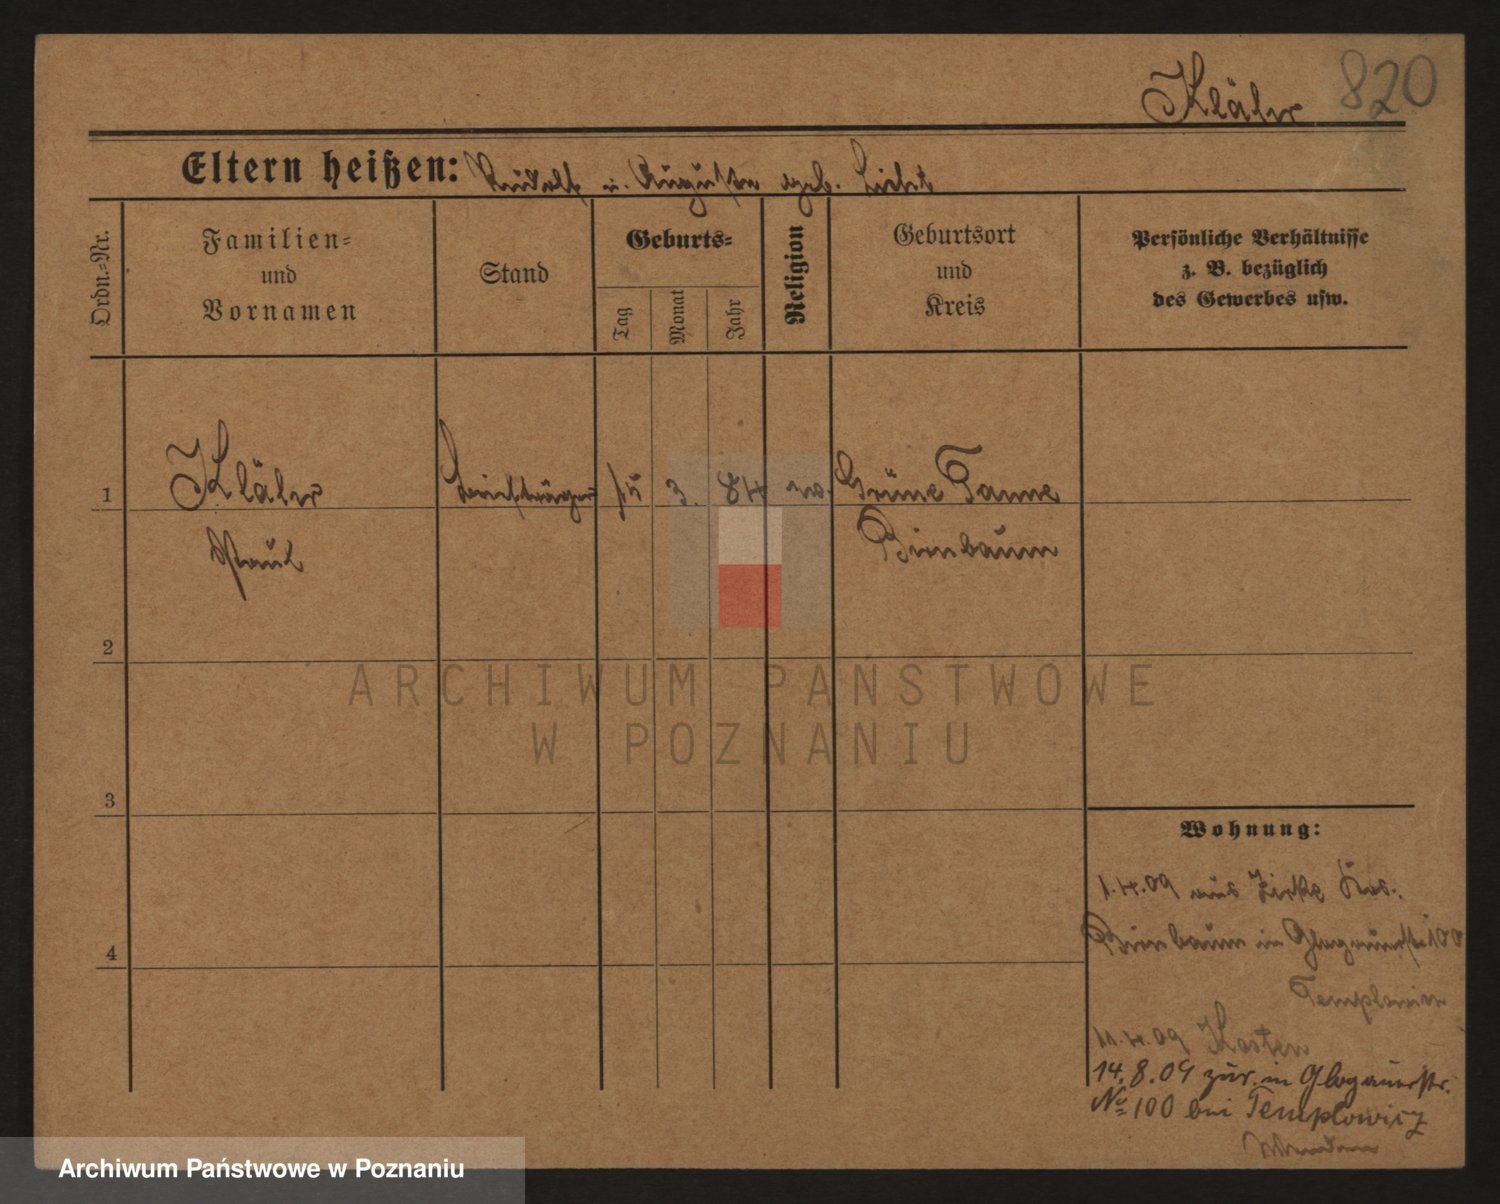 Klähr 820
Eltern heißen: Rudolf u. Auguste geb. Licht
Ordn.-Nr.
Familien-
und
Vornamen
Stand
Geburts-
Tag
Monat
Jahr
Religion
Geburtsort
und
Kreis
Persönliche Verhältnisse
z. B. bezüglich
des Gewerbes usw.
1
Klähr
Paul
15 3. 84 ev.
Grüne Tanne
Birnbaum
2
3
4
Wohnung:
1.4.09 aus Zirke Krs.
Birnbaum in Glogauerstr. 100
Templowicz
11.4.09 Kosten
14.8.09 zur. in Glogauerstr.
No 100 bei Templowicz
ARCHIWUM PAŃSTWOWE
W POZNANIU
Archiwum Państwowe w Poznaniu